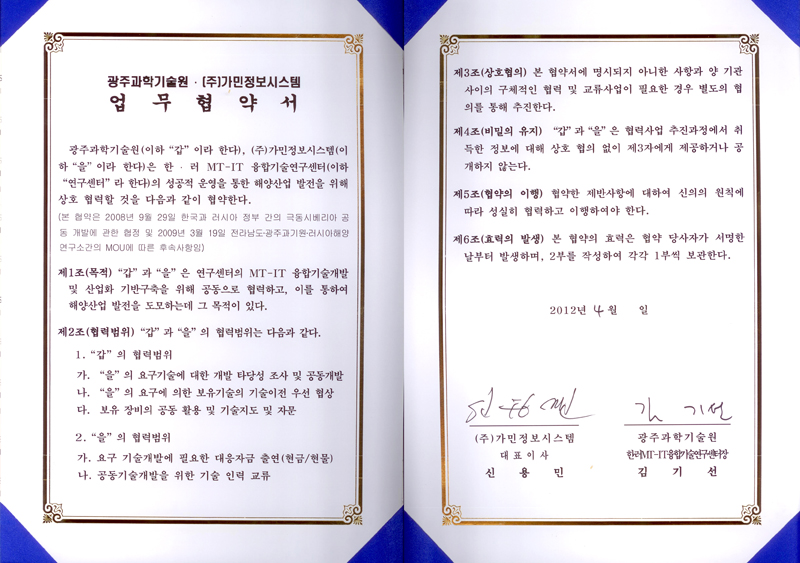 광주과학기술원 · (주)가민정보시스템
업 무 협 약 서
광주과학기술원(이하 “갑” 이라 한다), (주)가민정보시스템(이
하 “을” 이라 한다)은 한 · 러 MT-IT 융합기술연구센터(이하
“연구센터” 라 한다)의 성공적 운영을 통한 해양산업 발전을 위해
상호 협력할 것을 다음과 같이 협약한다.
(본 협약은 2008년 9월 29일 한국과 러시아 정부 간의 극동시베리아 공
동 개발에 관한 협정 및 2009년 3월 19일 전라남도-광주과기원-러시아해양
연구소간의 MOU에 따른 후속사항임)
제1조(목적) “갑” 과 “을” 은 연구센터의 MT-IT 융합기술개발
및 산업화 기반구축을 위해 공동으로 협력하고, 이를 통하여
해양산업 발전을 도모하는데 그 목적이 있다.
제2조(협력범위) “갑” 과 “을” 의 협력범위는 다음과 같다.
1. “갑” 의 협력범위
가. “을” 의 요구기술에 대한 개발 타당성 조사 및 공동개발
나. “을” 의 요구에 의한 보유기술의 기술이전 우선 협상
다. 보유 장비의 공동 활용 및 기술지도 및 자문
2. “을” 의 협력범위
가. 요구 기술개발에 필요한 대응자금 출연(현금/현물)
나. 공동기술개발을 위한 기술 인력 교류
제3조(상호협의) 본 협약서에 명시되지 아니한 사항과 양 기관
사이의 구체적인 협력 및 교류사업이 필요한 경우 별도의 협
의를 통해 추진한다.
제4조(비밀의 유지) “갑” 과 “을” 은 협력사업 추진과정에서 취
득한 정보에 대해 상호 협의 없이 제3자에게 제공하거나 공
개하지 않는다.
제5조(협약의 이행) 협약한 제반사항에 대하여 신의의 원칙에
따라 성실히 협력하고 이행하여야 한다.
제6조(효력의 발생) 본 협약의 효력은 협약 당사자가 서명한
날부터 발생하며, 2부를 작성하여 각각 1부씩 보관한다.
2012년 4 월 일
김 기선
(주)가민정보시스템
대 표 이 사
신 용 민
광주과학기술원
한러MT-IT융합기술연구센터장
김 기 선